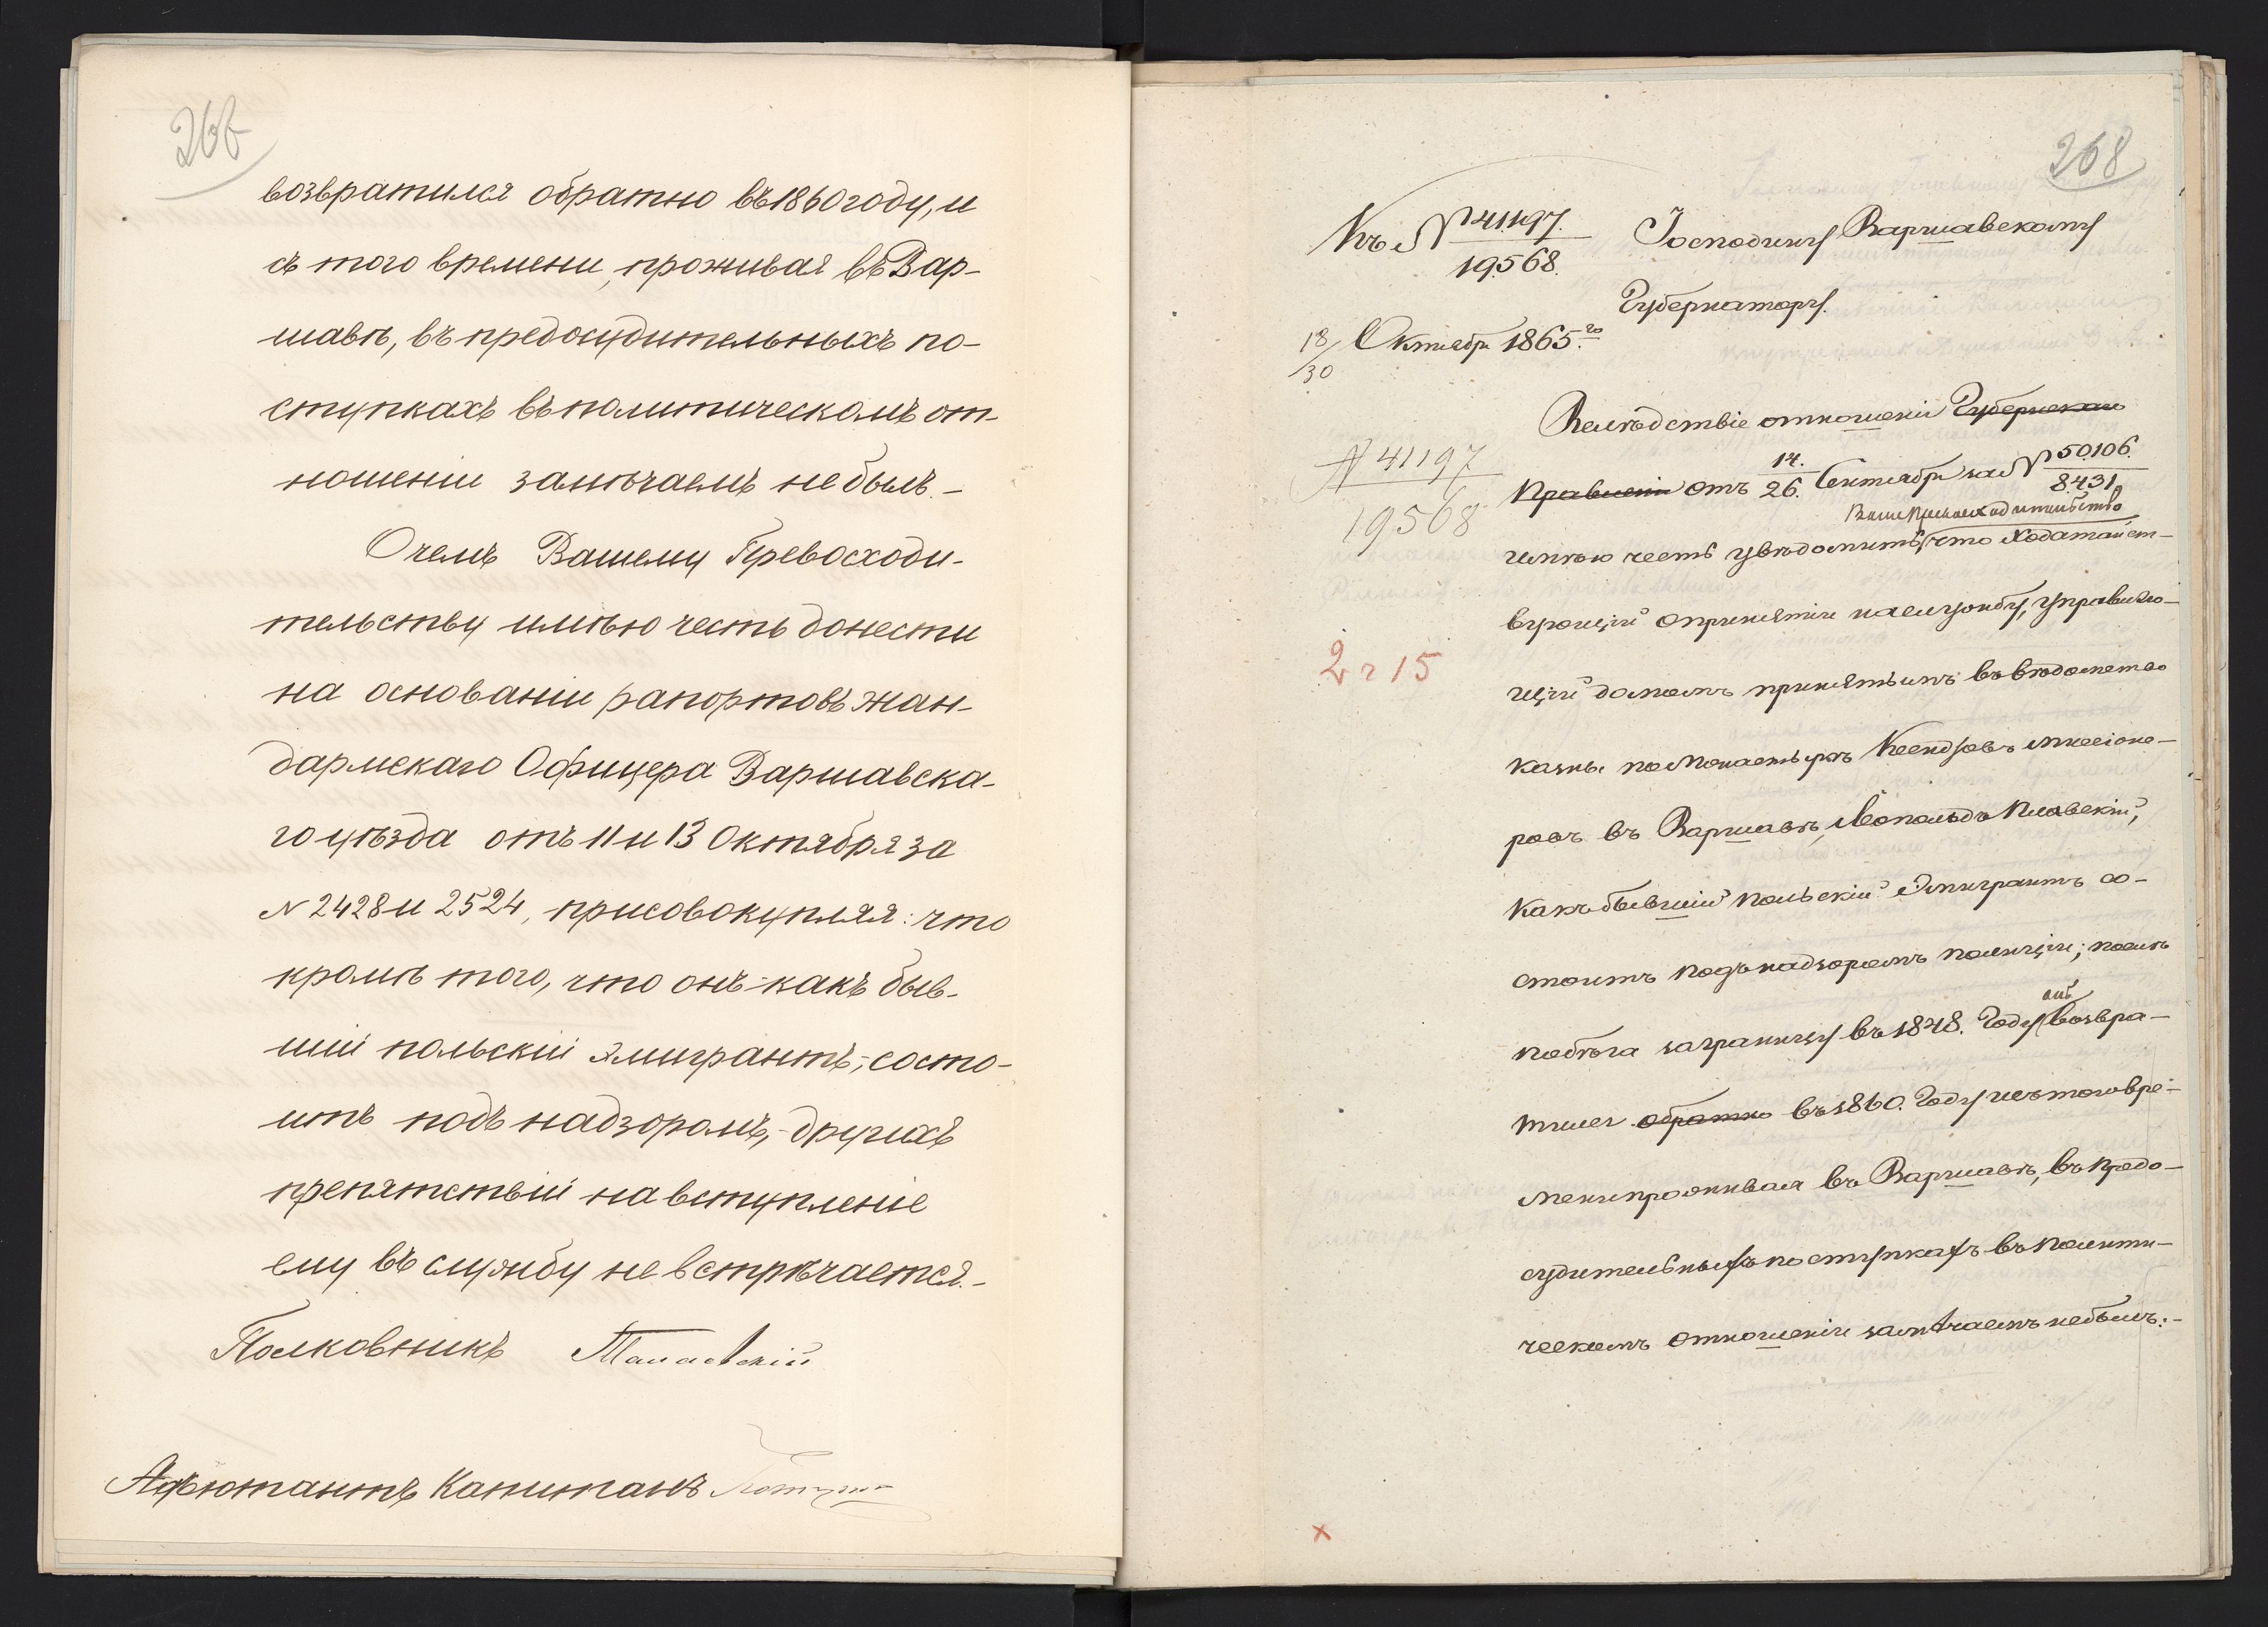 266
возвратился обратно въ 1860 году, и
съ того времени, проживая въ Вар-
шавѣ, въ предосудительныхъ по-
ступкахъ въ политическомъ от-
ношеніи замѣчаемъ не былъ.-
О чемъ Вашему Превосходи-
тельству имѣю честь донести
на основаніи рапортовъ жан-
дармскаго Офицера Варшавска-
го уѣзда отъ 11 и 13 Октября за
N 2428 и 2524, присовокупляя: что
кромѣ того, что онъ какъ быв-
шій польскій эмигрантъ, состо-
итъ подъ надзоромъ, - другихъ
препятствій на вступленіе
ему въ службу не встрѣчается.-
Полковникъ
Адъютантъ Капитанъ
268
Къ № 41197.
19568.
Господину Варшавскому
Губернатору.
18/30 Октября 1865.го
Вслѣдствіе отношенія Губернскаго
№ 41197
19568
Правленія отъ 14./26. Сентября за № 50106./8431
Ваше Превосходительство
имѣю честь увѣдомить, что ходатайст-
вующій о принятіи на службу, управляю-
2 г 15
щій домомъ принятымъ въ вѣдомство
казны по Монастырѣ Ксендзовъ миссіоне-
ровъ въ Варшавѣ, Леопольдъ
какъ бывшій польскій Эмигрантъ со-
стоитъ подъ надзоромъ полиціи; послѣ
побѣга заграницу въ 1848. Году онъ возвра-
тился обратно въ 1860. Году и съ того вре-
мени проживая въ Варшавѣ, въ предо-
судительныхъ поступкахъ въ полити-
ческомъ отношеніи замѣчаемъ не былъ.-